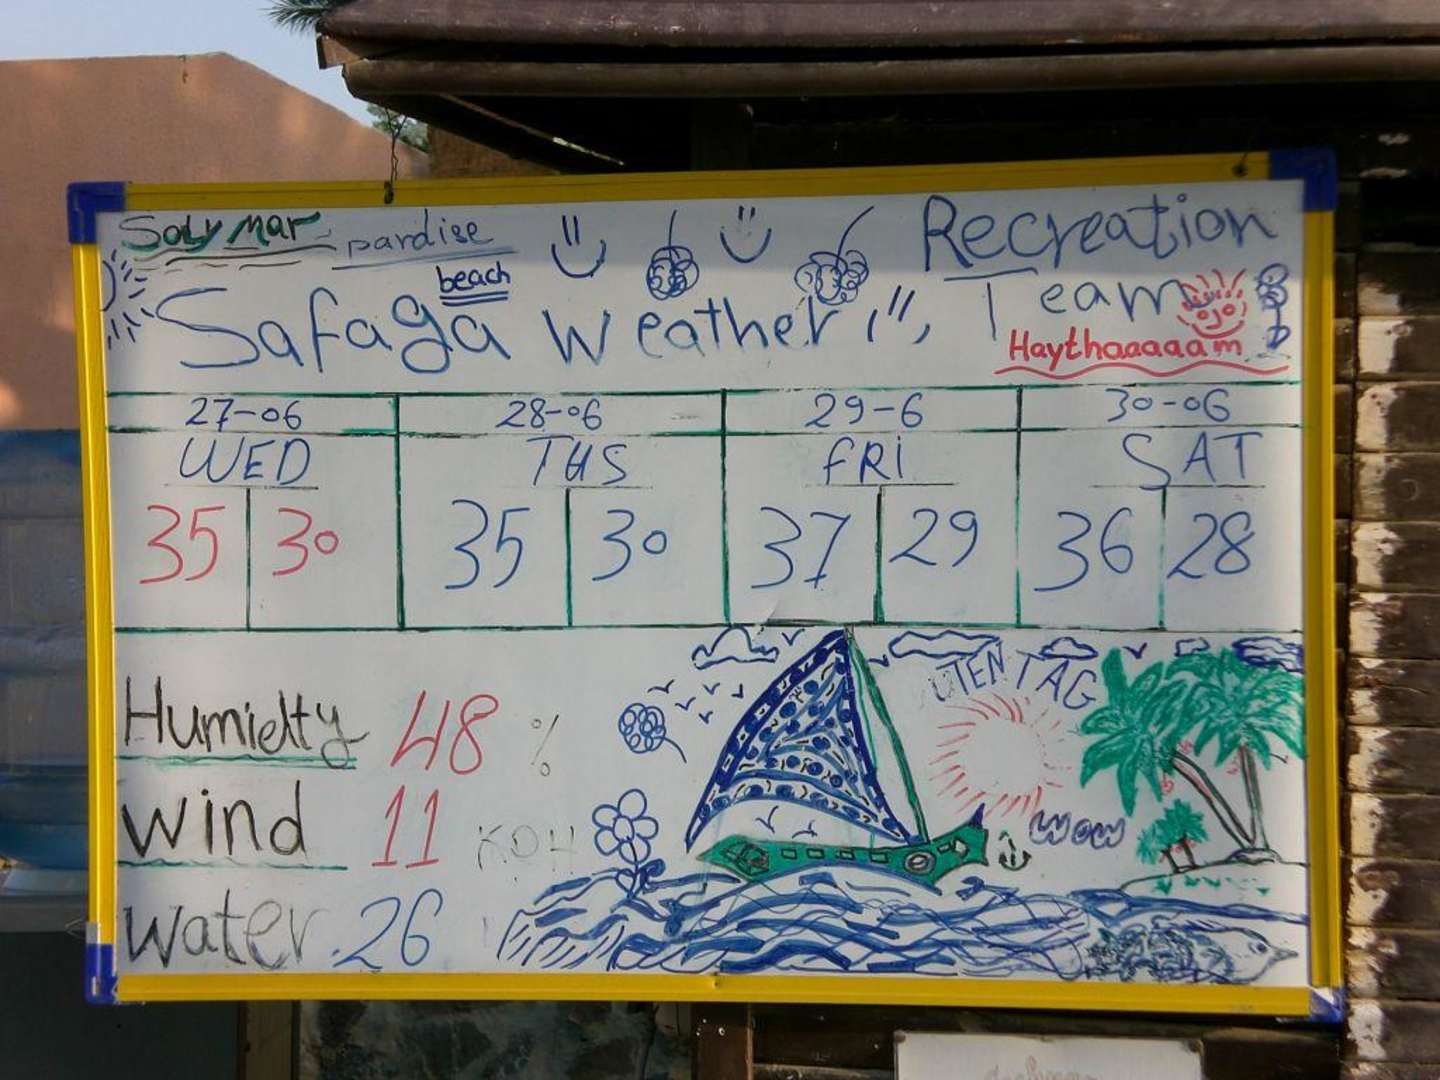 Soly mar pardise
beach
Safaga Weather
Recreation
Team
Haythaaaaam
27-06 28-06 29-6 30-06
WED THS FRI SAT
35 30 35 30 37 29 36 28
Humidty 48 %
wind 11 KOH
water 26
UTEN TAG
WOW